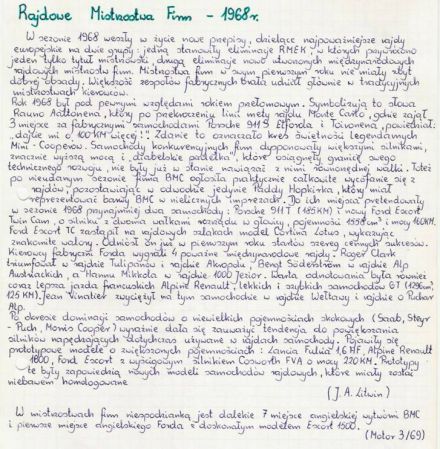 Rajdowe Mistrostwa Firm - 1968r.
W sezonie 1968 weszły w życie nowe przepisy, dzielące najpoważniejsze rajdy
europejskie na dwie grupy: jedną stanowiły eliminacje RMEK, w których przywrócono
jeden tylko tytuł mistrzowski, drugą eliminacje nowo utworzonych międzynarodowych
rajdowych mistrzostw firm. Mistrzostwa firm w swym pierwszym roku nie miały zbyt
dobrej obsady. Większość zespołów fabrycznych brała udział głównie w tradycyjnych
mistrzostwach kierowców.
Rok 1968 był pod pewnymi względami rokiem przełomowym. Symbolizują to słowa
Rauno Aaltonena, który po przekroczeniu linii mety rajdu Monte Carlo, gdzie zajął
3 miejsce za fabrycznymi samochodami Porsche 911 S Elforda i Toivonena, powiedział:
"dajcie mi o 100 KM więcej!". Zdanie to oznaczało kres świetności legendarnych
Mini-Cooperów. Samochody konkurencyjnych firm dysponowały większymi silnikami,
znacznie wyższą mocą i "diabelskie pudełka", które osiągnęły granicę swego
technicznego rozwoju, nie były już w stanie nawiązać z nimi równorzędnej walki. Toteż
po nieudanym sezonie firma BMC ogłosiła praktycznie całkowite wycofanie się z
rajdów, pozostawiając w odwodzie jedynie Paddy Hopkirka, który miał
reprezentować barwy BMC w nielicznych imprezach. Do ich miejsca pretendowały
w sezonie 1968 przynajmniej dwa samochody: Porsche 911 T (155KM) i nowy Ford Escort
Twin Cam, o silniku z dwoma wałkami rozrządu w głowicy, pojemności 1558 cm³ i mocy 160KM.
Ford Escort TC zastąpił na rajdowych szlakach model Cortina Lotus, wykazując
znakomite walory. Odniósł on już w pierwszym roku startów szereg cennych sukcesów.
Kierowcy fabryczni Forda wygrali 4 poważne międzynarodowe rajdy: Roger Clark
triumfował w rajdzie Tulipanów i rajdzie Akropolu, Bengt Söderström w rajdzie Alp
Austriackich, a Hannu Mikkola w rajdzie 1000 Jezior. Warta odnotowania była również
coraz lepsza jazda francuskich Alpine Renault, lekkich i szybkich samochodów GT (1296cm³,
125 KM). Jean Vinatier zwyciężył na tym samochodzie w rajdzie Wełtawy i rajdzie o Puchar
Alp.
Po okresie dominacji samochodów o niewielkich pojemnościach skokowych (Saab, Steyr
- Puch, Morris Cooper) wyraźnie dała się zauważyć tendencja do powiększania
silników napędzających dotychczas używane w rajdach samochody. Pojawiły się
prototypowe modele o zwiększonych pojemnościach: Lancia Fulvia 1,6 HF, Alpine Renault
1600, Ford Escort z wyścigowym silnikiem Cosworth FVA o mocy 220KM. Prototypy
te były zapowiedzią nowych modeli samochodów rajdowych, które miały zostać
niebawem homologowane.
(J. A. Litwin)
W mistrzostwach firm niespodzianką jest dalekie 7 miejsce angielskiej wytwórni BMC
i pierwsze miejsce angielskiego Forda z doskonałym modelem Escort 1500.
(Motor 3/69)